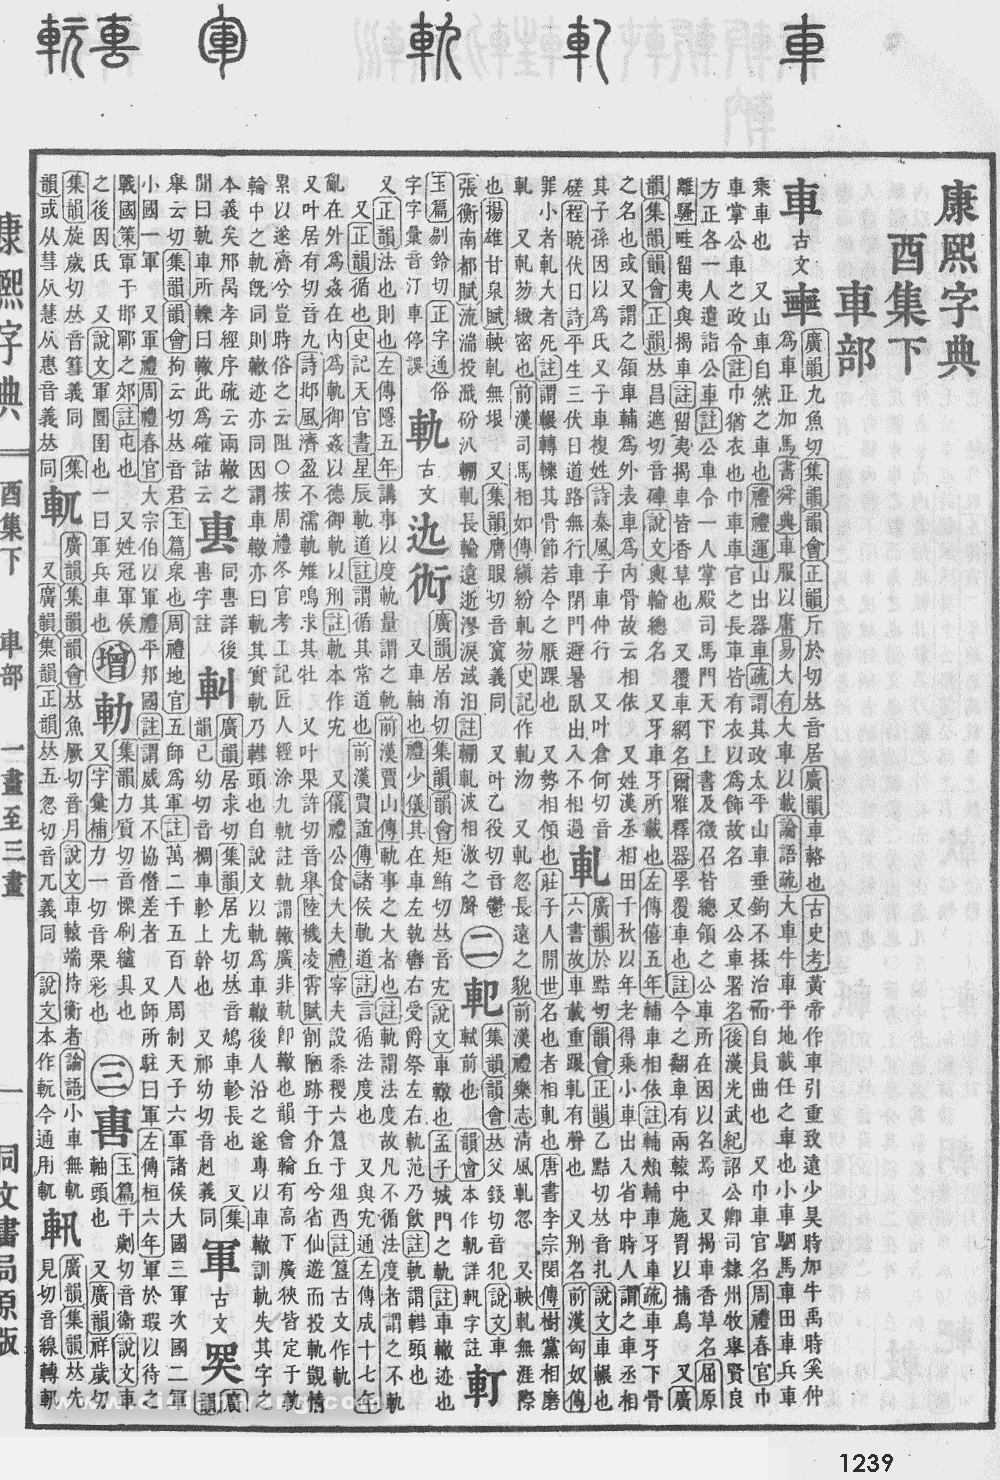 康熙字典
酉集下
車部
車古文𨏖
廣韻九魚切集韻韻會正韻斤於切𠀤音居廣韻車輅也古史考黃帝作車引重致遠少昊時加牛禹時奚仲
爲車正加馬書舜典車服以庸易大有大車以載論語疏大車牛車平地載任之車也小車駟馬車田車兵車
乘車也 又山車自然之車也禮禮運山出器車疏謂其政太平山車垂鉤不揉治而自員曲也 又巾車官名周禮春官巾
車掌公車之政令註巾猶衣也巾車車官之長車皆有衣以爲飾故名 又公車署名後漢光武紀詔公卿司隸州牧舉賢良
方正各一人遣詣公車註公車令一人掌殿司馬門天下上書及徵召皆總領之公車所在因以名焉 又揭車香草名屈原
離騷畦留夷與揭車註留夷揭車皆香草也 又覆車網名爾雅釋器罦覆車也註今之翻車有兩轅中施罥以捕鳥 又廣
韻集韻韻會正韻𠀤昌遮切音硨說文輿輪總名 又牙車牙所載也左傳僖五年輔車相依註輔頰輔車牙車疏車牙下骨
之名也或又謂之頷車輔爲外表車爲內骨故云相依 又姓漢丞相田千秋以年老得乘小車出入省中時人謂之車丞相
其子孫因以爲氏又子車複姓詩秦風子車仲行 又叶倉何切音
磋程曉伏日詩平生三伏日道路無行車閉門避暑臥出入不相過
軋六書故車載重蹍軋有聲也 又刑名前漢匈奴傳
廣韻於點切韻會正韻乙點切𠀤音扎說文車輾也
罪小者軋大者死註謂輾轉轢其骨節若今之厭踝也 又勢相傾也莊子人閒世名也者相軋也唐書李宗閔傳樹黨相磨
軋 又軋芴緻密也前漢司馬相如傳縝紛軋芴史記作軋沕 又軋忽長遠之貌前漢禮樂志清風軋忽 又軮軋無涯際
也揚雄甘泉賦軮軋無垠 又集韻膺眼切音𡫏義同 又叶乙役切音鬱
張衡南都賦流湍投濈砏汃輣軋長輸遠逝漻淚淢汩註輣軋波相激之聲
二
軓
集韻韻會𠀤父錽切音犯說文車
軾前也 韻會本作軋詳軓字註
軒
玉篇剔鈴切正字通俗
字字彙音汀車停誤
軌古文𨒥𧗠
廣韻居洧切集韻韻會矩鮪切𠀤音宄說文車轍也孟子城門之軌註車轍迹也
又車軸也禮少儀其在車左執轡右受爵祭左右軌范乃飮註軌謂轊頭也
又正韻法也則也左傳隱五年講事以度軌量謂之軌前漢賈山傳軌事之大者也註軌謂法度也 又凡不循法度者謂之不軌
又正韻循也史記天官書星辰軌道註謂循其常道也前漢賈誼傳諸侯軌道註言循法度也 又與宄通左傳成十七年
亂在外爲姦在內爲軌御姦以德御軌以刑註軌本作宄 又儀禮公食大夫禮宰夫設黍稷六簋于俎西註簋古文作軌
又叶居有切音九詩邶風濟盈不濡軌雉鳴求其牡 又叶果許切音舉陸機凌霄賦削陋跡于介丘兮省仙遊而投軌覿憍
累以遂濟兮豈時俗之云阻○按周禮冬官考工記匠人經涂九軌註軌謂轍廣非軌卽轍也韻會輪有高下廣狹皆定于軌
輪中之軌旣同則轍迹亦同因謂車轍亦曰軌其實軌乃轊頭也自說文以軌爲車轍後人沿之遂專以車轍訓軌失其字之
本義矣邢昺孝經序疏云兩轍之
閒曰軌車所轢曰轍此爲確詁云
軎同軎詳後
軎字註
軐
廣韻居求切集韻居尤切𠀤音鳩車軫長也 又集
韻已幼切切音樛車軫上幹也 又祁幼切切音赳義同
軍古文𠣞
廣韻
舉云切集韻韻會拘云切𠀤音君玉篇衆也周禮地官五師爲軍註萬二千五百人周制天子六軍諸侯大國三軍次國二軍
小國一軍 又軍禮周禮春官大宗伯以軍禮平邦國註謂威其不協僭差者 又師所駐曰軍左傳桓六年軍於瑕以待之
戰國策軍于邯鄲之郊註屯也 又姓冠軍侯
之後因氏 又說文軍圜圍也一曰軍兵車也
增
𨊧
集韻力質切音慄刷繀具也
又字彙補力一切音栗彩也
三
軎
玉篇于劌切音衞說文車
軸頭也 又廣韻祥歲切
集韻旋歲切𠀤音篲義同 集
韻或从彗从慧从惠音義𠀤同
軏
廣韻集韻韻會𠀤魚厥切音月說文車轅端持衡者論語小車無軏
又廣韻集韻正韻𠀤五忽切音兀義同 說文本作軏今通用軏
䡅
廣韻集韻𠀤先
見切音線轉軓
康熙字典
酉集下 車部 一畫至三畫
一
同文書局原版
1239